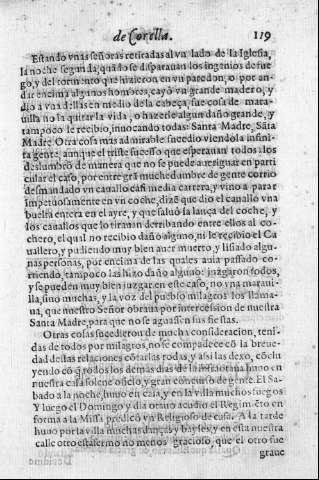 de Corella. 119
Estando vnas señoras retiradas al vn lado de la Iglesia,
la noche segunda, quãdo se disparauan los ingenios de fue
go, y del tormento que hizieron en vn paredon, o por an-
dar encima algunos hombres, cayò vn grande madero, y
diò a vna dellas en medio de la cabeça, fue cosa de mara-
uilla no la quitar la vida, o hazerle algun daño grande, y
tampoco le recibio, inuocando todas Santa Madre, Sãta
Madre. Otra cosa mas admirable sucedio viendola infini-
ta gente, aunque el triste sucesso que esperauan todos los
deslumbrò de manera que no se puede aueriguar en parti
cular el caso, por entre grã muchedumbre de gente corrio
desmandado vn cauallo casi media carrera, y vino a parar
impetuosamente en vn coche, dizẽ que dio el cauallo vna
buelta entera en el ayre, y que saluò la lança del coche, y
los cauallos que lo tirauan derribando entre ellos al co-
chero, el qual no recibio daño alguno, ni le recibio el Ca
uallero, y pudiendo muy bien auer muerto, y lisiado algu-
nas personas, por encima de las quales auia passado co-
rriendo, tampoco las hizo daño alguno: juzgaron todos,
y se pueden muy bien juzgar en este caso, no vna maraui-
lla, sino muchas, y la voz del pueblo milagros los llama-
ua, que nuestro Señor obraua por intercession de nuestra
Santa Madre, para que no se aguassen sus fiestas.
Otras cosas sucedieron de mucha consideracion, teni-
das de todos por milagros, no se compadece cõ la breue-
dad destas relaciones cõtarlas todas, y assi las dexo, cõclu
yendo cõ q̃ todos los demas dias de la octaua huuo en
nuestra casa solene oficio, y gran concurso de gente. El Sa-
bado a la noche, huuo en casa, y en la villa muchos fuegos
Y luego el Domingo y dia octauo acudio el Regimiẽto en
forma a la Missa predicò vn Religioso de casa. A la tarde
huuo por la villa muchas danças y bayles, y en essa nuestra
calle otro estafermo no menos gracioso, que el otro fue
graue